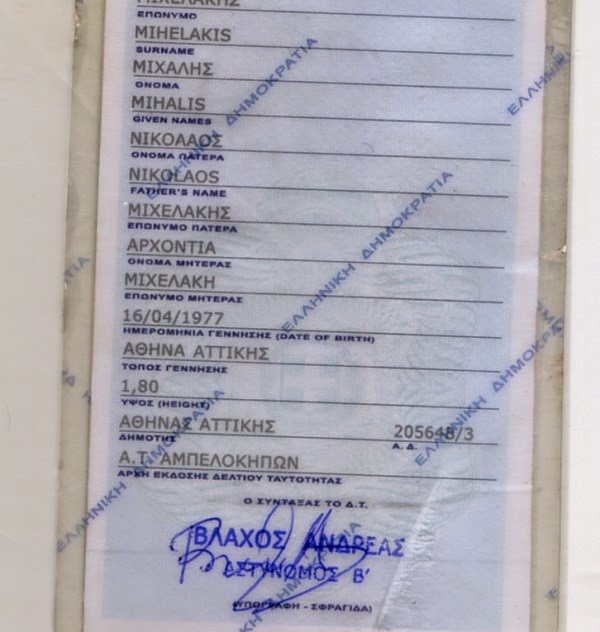 ΜΙΧΕΛΑΚΗΣ
ΕΠΩΝΥΜΟ
MIHELAKIS
SURNAME
ΜΙΧΑΛΗΣ
ΟΝΟΜΑ
MIHALIS
GIVEN NAMES
ΝΙΚΟΛΑΟΣ
ΟΝΟΜΑ ΠΑΤΕΡΑ
NIKOLAOS
FATHER'S NAME
ΜΙΧΕΛΑΚΗΣ
ΕΠΩΝΥΜΟ ΠΑΤΕΡΑ
ΑΡΧΟΝΤΙΑ
ΟΝΟΜΑ ΜΗΤΕΡΑΣ
ΜΙΧΕΛΑΚΗ
ΕΠΩΝΥΜΟ ΜΗΤΕΡΑΣ
16/04/1977
ΗΜΕΡΟΜΗΝΙΑ ΓΕΝΝΗΣΗΣ (DATE OF BIRTH)
ΑΘΗΝΑ ΑΤΤΙΚΗΣ
ΤΟΠΟΣ ΓΕΝΝΗΣΗΣ
1,80
ΥΨΟΣ (HEIGHT)
ΑΘΗΝΑΣ ΑΤΤΙΚΗΣ 205648/3
ΔΗΜΟΤΗΣ Α.Δ.
Α.Τ. ΑΜΠΕΛΟΚΗΠΩΝ
ΑΡΧΗ ΕΚΔΟΣΗΣ ΔΕΛΤΙΟΥ ΤΑΥΤΟΤΗΤΑΣ
Ο ΣΥΝΤΑΞΑΣ ΤΟ Δ.Τ.
ΒΛΑΧΟΣ ΑΝΔΡΕΑΣ
ΑΣΤΥΝΟΜΟΣ Β'
(ΥΠΟΓΡΑΦΗ - ΣΦΡΑΓΙΔΑ)
ΕΛΛΗΝΙΚΗ ΔΗΜΟΚΡΑΤΙΑ
ΕΛΛΗΝΙΚΗ
ΕΛΛΗΝΙΚΗ ΔΗΜΟΚΡΑΤΙΑ
ΕΛΛΗΝΙΚΗ ΔΗΜΟΚΡΑΤΙΑ
ΕΛΛΗΝΙΚΗ ΔΗΜΟΚΡΑΤΙΑ